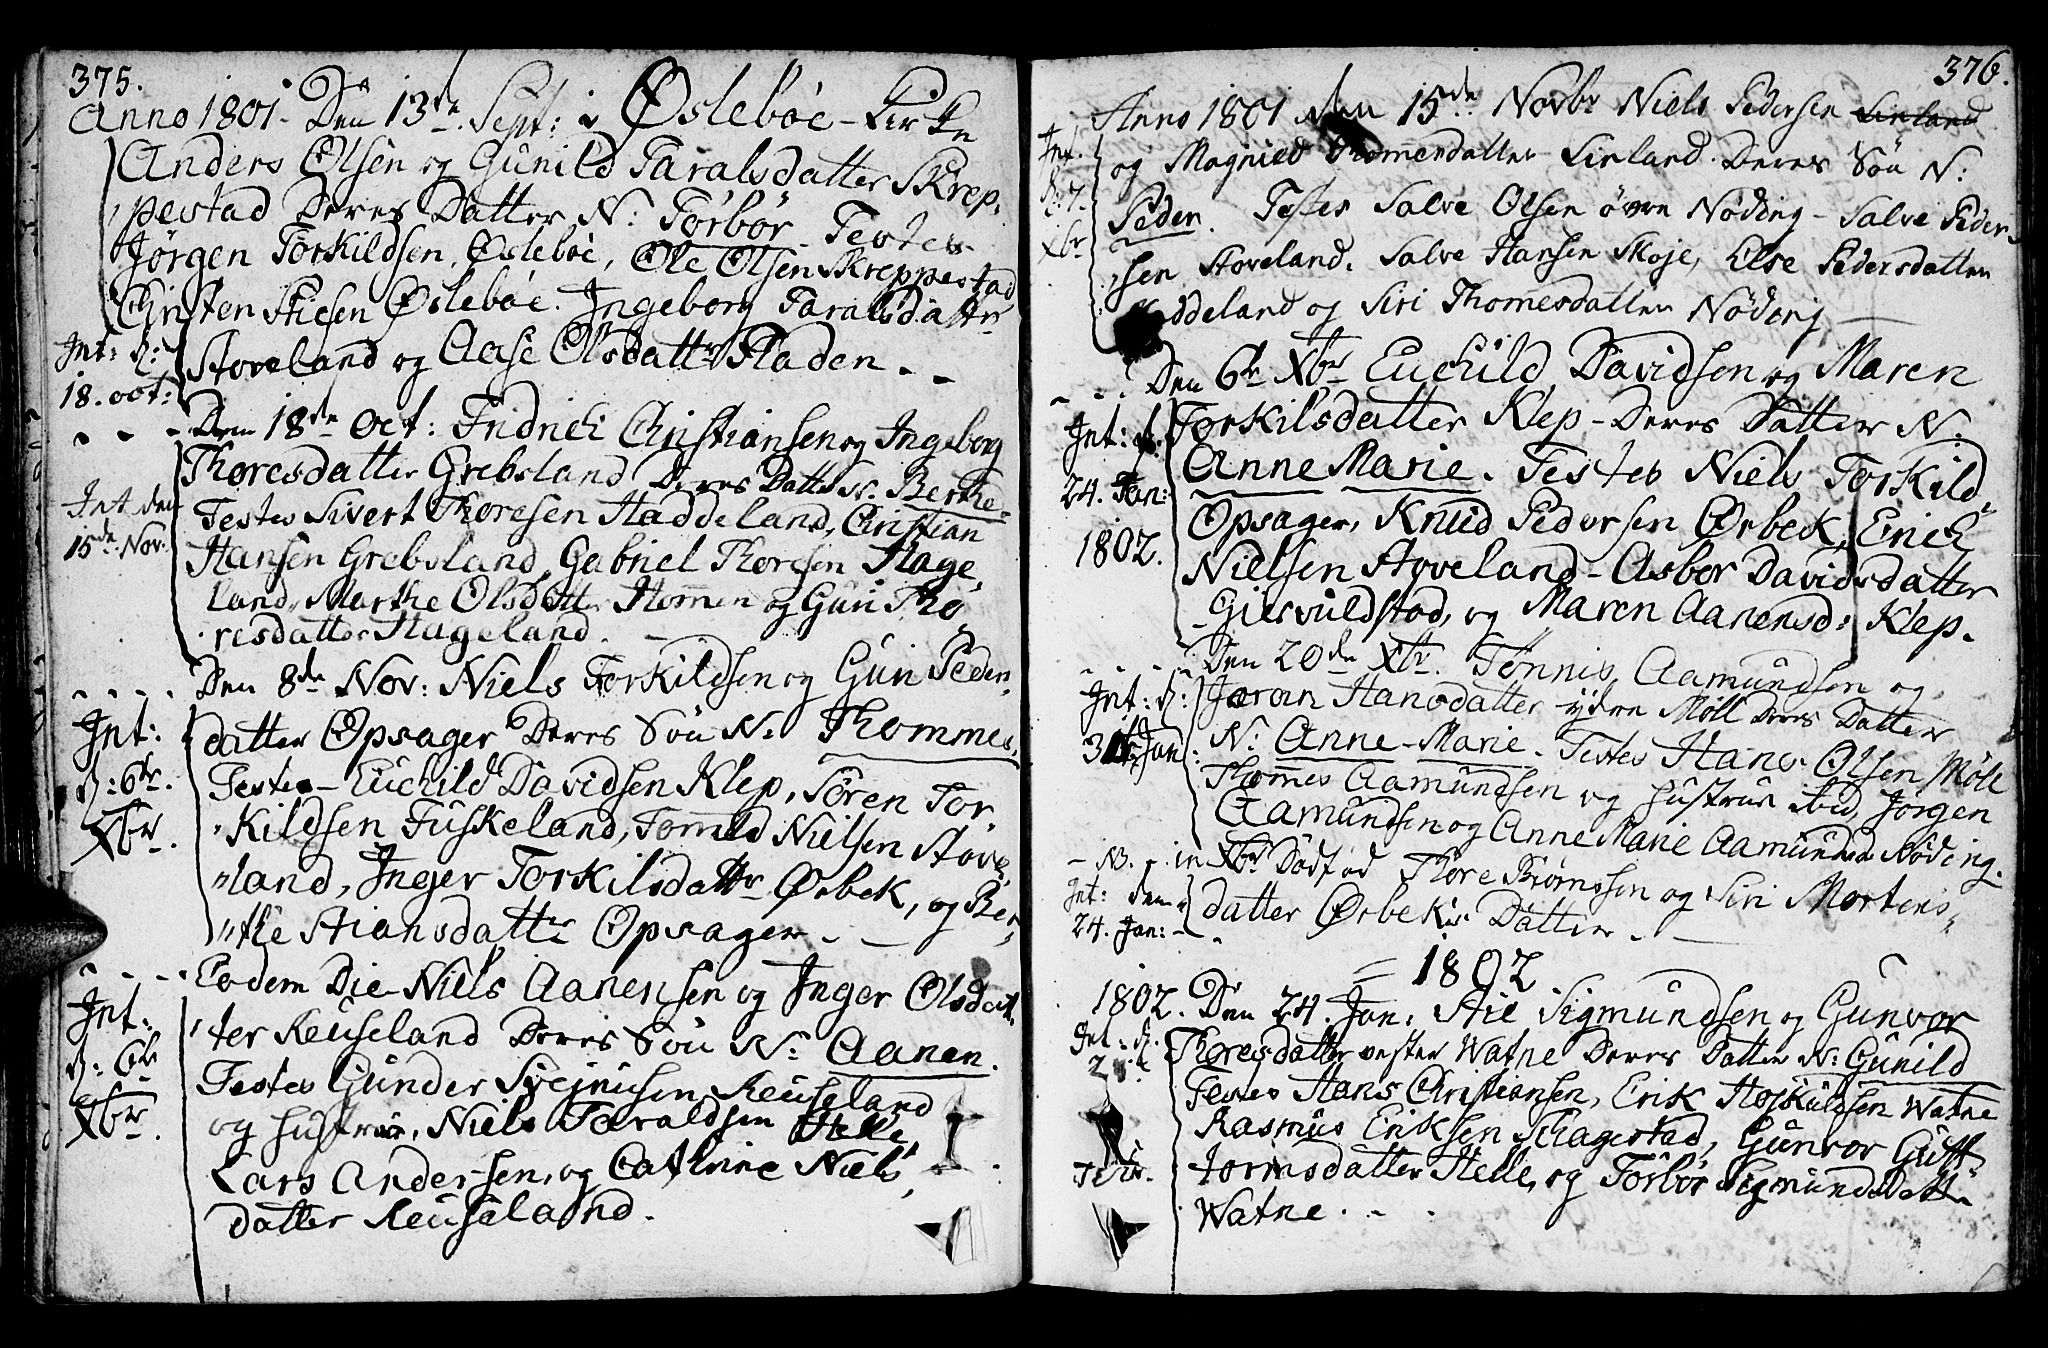 375.
Anno 1801. Den 13de Sept: i Øslebøe-Kirke
Anders Olsen og Gunild Taralsdatter Skrep,
pestad Deres Datter N: Torbør. Testes
Jørgen Torkildsen, Øslebøe, Ole Olsen Skreppestad
Christen Stiesen Øslebøe. Ingeborg Taralsdattr
Int: d: Stoveland og Aase Olsdattr Fladen.
18. oct:
Den 18de Oct: Fridrich Christiansen og Ingeborg
Thoresdatter Grebsland Deres Datter N. Berthe.
Int den Testes Sivert Thoresen Haddeland, Christian
15de Nov: Hansen Grebsland, Gabriel Thoresen Hage,
land, Marthe Olsdatter Homen og Guri Tho,
resdatter Hageland.
Den 8de Nov: Niels Torkildsen og Guri Peders,
Int: datter Opsager Deres Søn N: Thommes.
d: 6te Testes Euchild Davidsen Klep, Søren Tor,
Xbr. kildsen Fuskeland, Niels Nielsen Stove,
land, Inger Torkilsdattr Ørbek, og Ber,
the Stiansdatter Opsager.
Eodem Die Niels Aanensen og Inger Olsdat,
Int: ter Reuseland Deres Søn N: Aanen.
d: 6te Testes Gunder Reuseland
Xbr. og Hustrue, Niels Taraldsen Helle,
Lars Andersen, og Cathrine Niels,
datter Reuseland.
376.
Anno 1801 den 15de Novbr Niels Pedersen Linland
Int. og Magnild Thomesdatter Linland. Deres Søn N:
d: 7. Peder. Testes Salve Olsen övre Nöding - Salve Peder-
Xbr sen Stoveland. Salve Hansen Skoje, Else Pedersdatter
ddeland og Siri Thomesdatter Nöding
Den 6te Xbr Euchild Davidsen og Maren
Int: d. Torkilsdatter Klep - Deres Datter N:
24. Jan: Anne Marie. Testes Niels Torkilds:
1802. Opsager, Knud Pedersen Ørbek, Erich
Nielsen Stoveland - Asbor Davidsdatter
Giervuldstad, og Maren Aanensd: Klep.
Den 20de Xbr. Tønnis Aamundsen og
Int: d: Joran Hansdatter ydre Möll Deres Datter
31 Jan: N: Anne-Marie. Testes Hans Olsen Möll
Thomes Aamundsen og Hustrue ibid, Jørgen
Aamundsen og Anne Marie Aamundsd Nöding.
N3. in Xbr Dödfød Thore Brømssen og Siri Mortens,
Int: den datter Ørbekis Datter.
24. Jan:
1802
1802. Den 24. Jan: Stie Sigmundsen og Gunvor
Int: d. Thoresdatter vester Watne Deres Datter N: Gunild
Testes Hans Christiansen, Erik Hoskuldsen Watne
Rasmus Eriksen Flagestad, Gunvor Gutt,
Febr. tormsdatter Helle, og Torbør Sigmundsdatt
Watne.